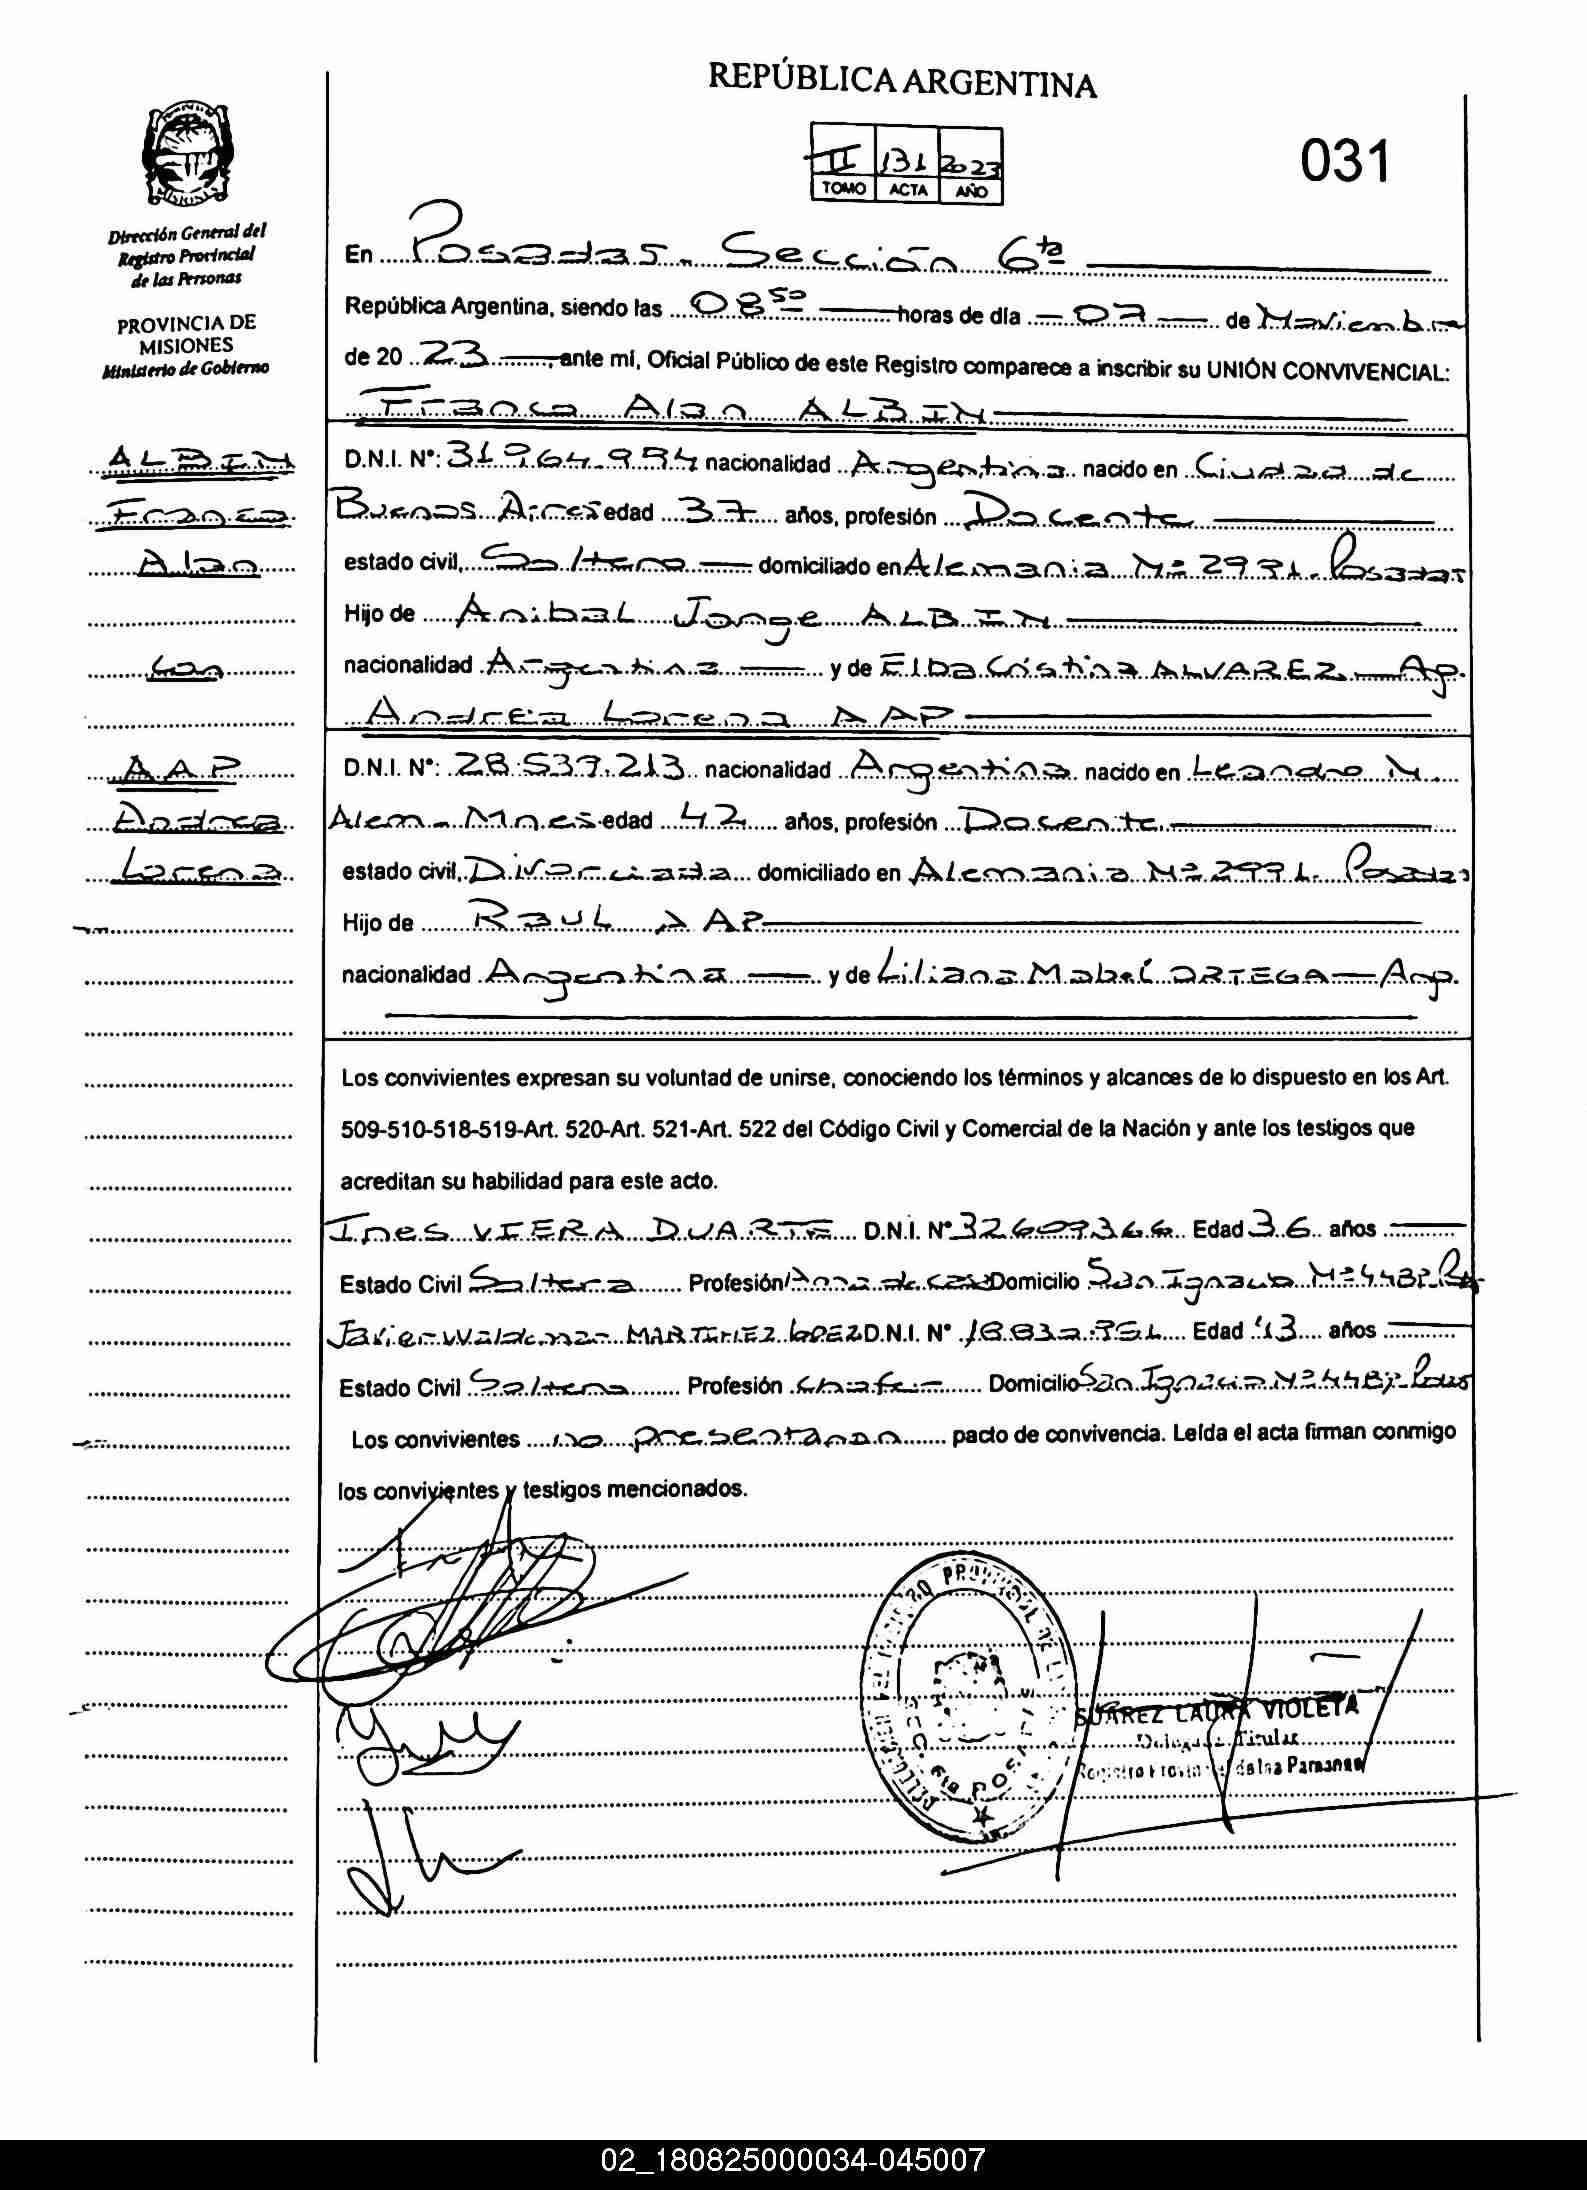 REPÚBLICA ARGENTINA
II 131 2023
TOMO ACTA AÑO
031
Dirección General del
Registro Provincial
de las Personas
PROVINCIA DE
MISIONES
Ministerio de Gobierno
En Posadas - Sección 6ta
República Argentina, siendo las 08 50 horas de día 07 de Noviembre
de 20 23, ante mí, Oficial Público de este Registro comparece a inscribir su UNIÓN CONVIVENCIAL:
Franco Alan ALBIN
ALBIN
Franco
Alan
Con
AAP
Andrea
Lorena
D.N.I. Nº: nacionalidad Argentina nacido en Ciudad de
Buenos Aires edad 37 años, profesión Docente
estado civil, Soltero domiciliado en Alemania Nº 2991 - Posadas
Hijo de Anibal Jorge ALBIN
nacionalidad Argentina y de Elba Cristina ALVAREZ - Arg.
Andrea Lorena AAP
D.N.I. Nº: 28.539.213 nacionalidad Argentina nacido en Leandro N.
Alem - Mnes edad 42 años, profesión Docente
estado civil, Divorciada domiciliado en Alemania Nº 2991 - Posadas
Hijo de Raul AAP
nacionalidad Argentina y de Liliana Mabel ORTEGA - Arg.
Los convivientes expresan su voluntad de unirse, conociendo los términos y alcances de lo dispuesto en los Art.
509-510-518-519-Art. 520-Art. 521-Art. 522 del Código Civil y Comercial de la Nación y ante los testigos que
acreditan su habilidad para este acto.
Ines VIERA DUARTE D.N.I. Nº 32.609.366 Edad 36 años
Estado Civil Soltera Profesión Ama de casa Domicilio San Ignacio Nº 4487
Javier Waldemar MARTINEZ LOPEZ D.N.I. Nº Edad 43 años
Estado Civil Soltero Profesión Chofer Domicilio San Ignacio Nº 4487 - Posadas
Los convivientes no presentaron pacto de convivencia. Leída el acta firman conmigo
los convivientes y testigos mencionados.
SUAREZ LAURA VIOLETA
Delegada Titular
Registro Provincial de las Personas
02_180825000034-045007